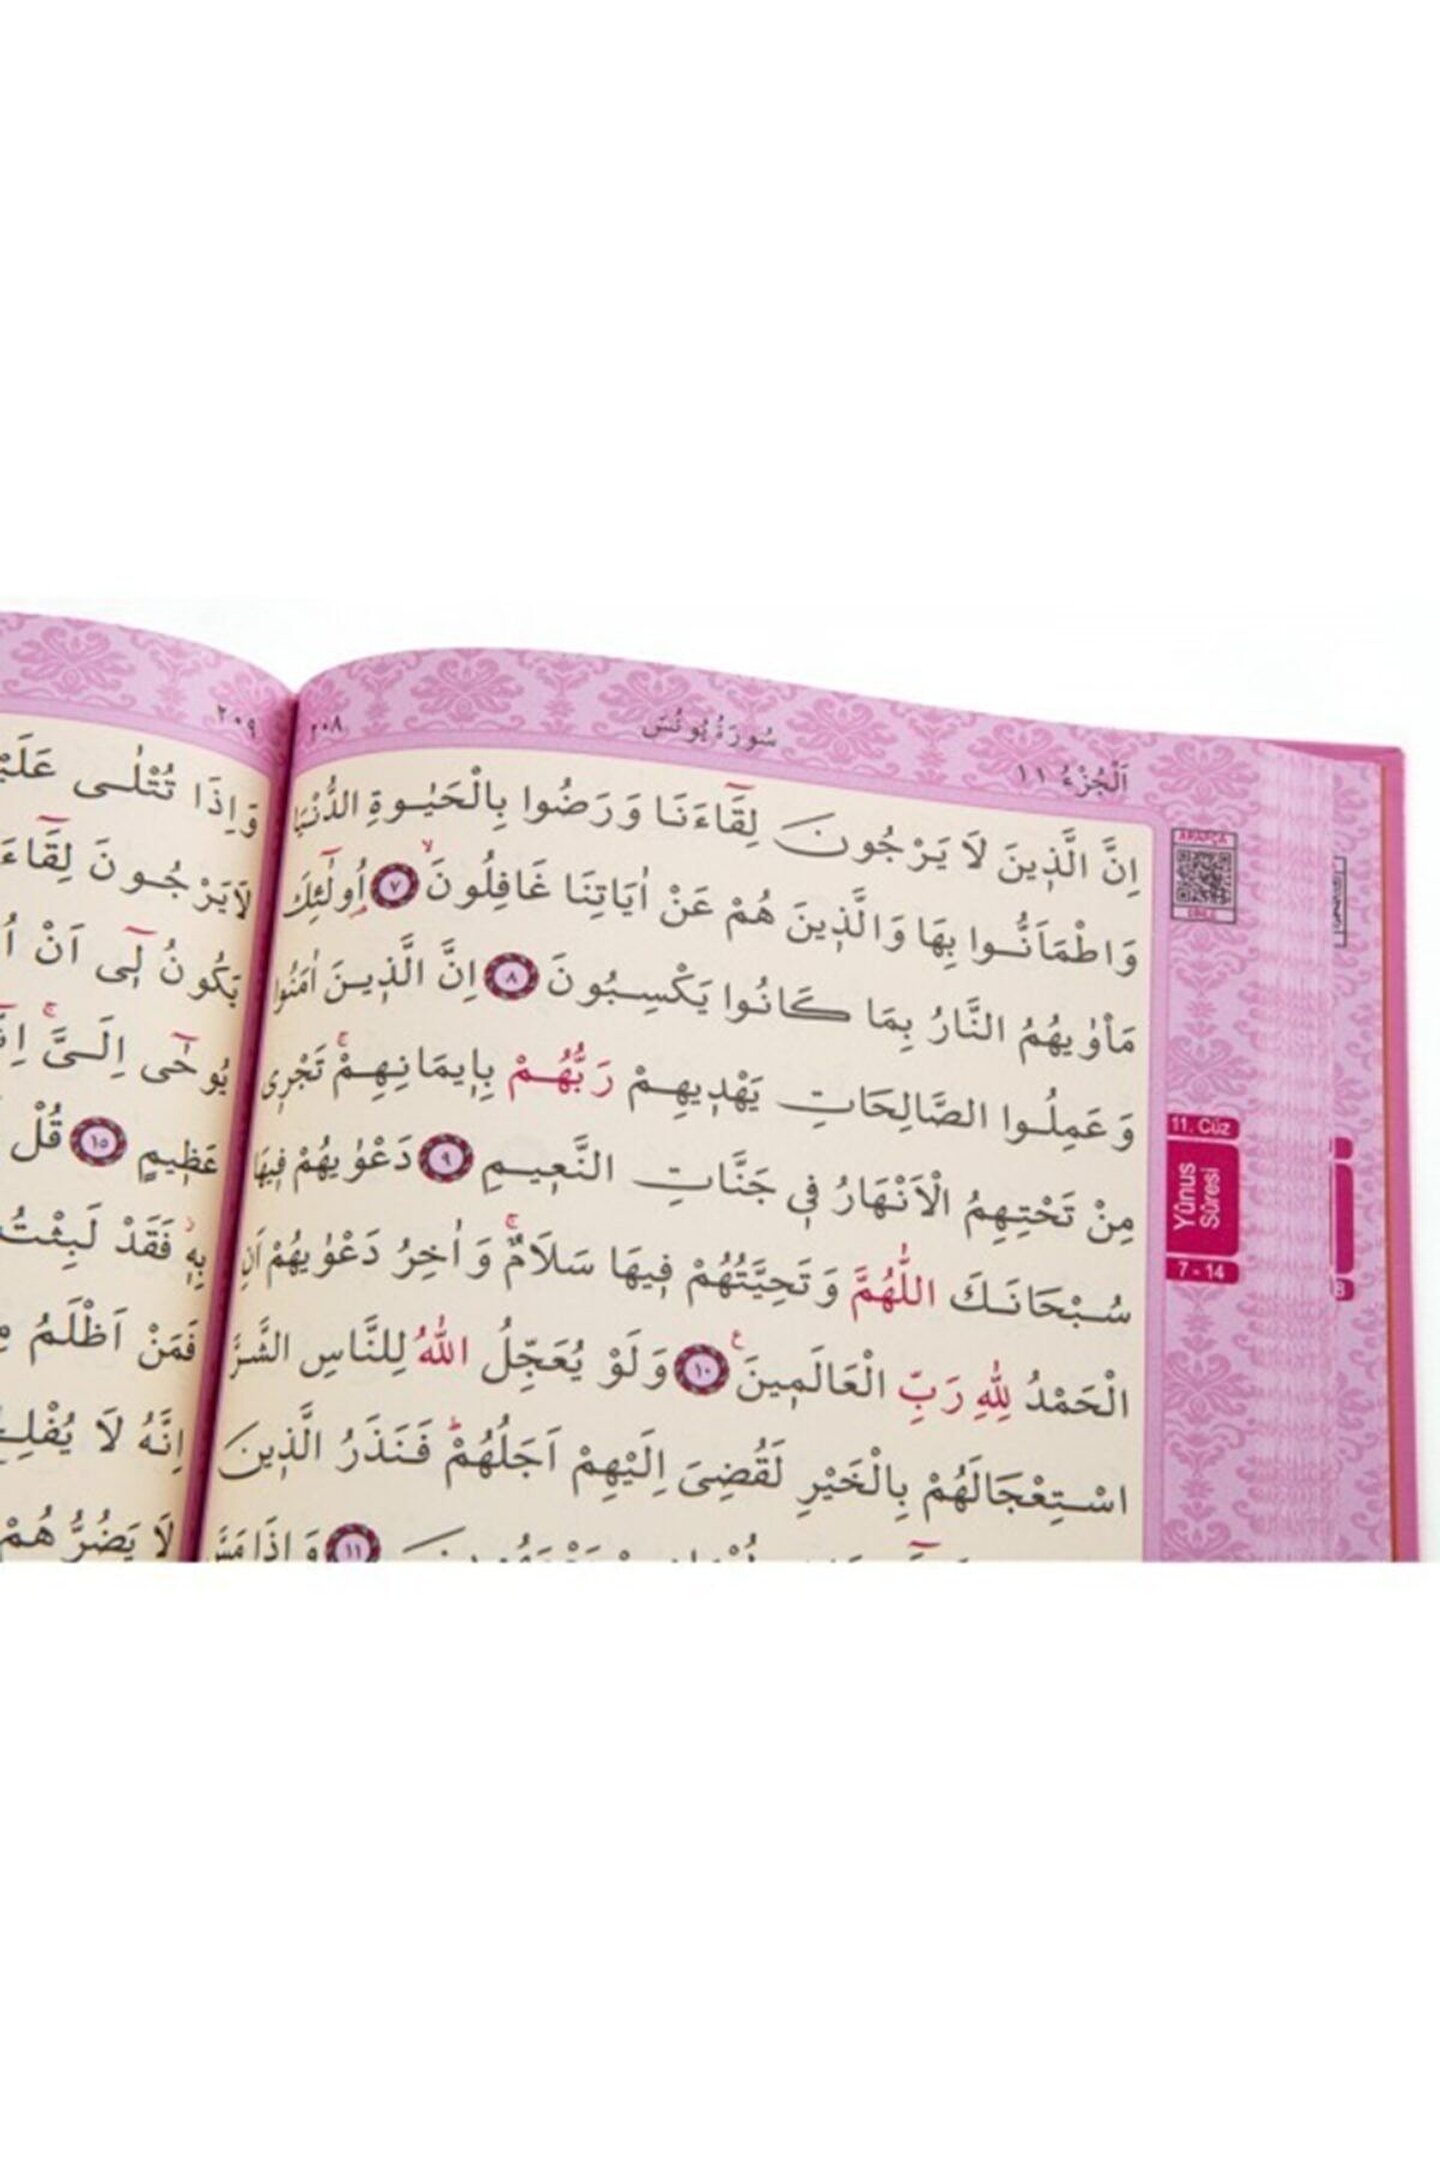 ٢٠٨
سُورَةُ يُونُسَ
اَلْجُزْءُ ١١
اِنَّ الَّذ۪ينَ لَا يَرْجُونَ لِقَٓاءَنَا وَرَضُوا بِالْحَيٰوةِ الدُّنْيَا
وَاطْمَاَنُّوا بِهَا وَالَّذ۪ينَ هُمْ عَنْ اٰيَاتِنَا غَافِلُونَۙ ﴿٧﴾ اُو۬لٰٓئِكَ
مَأْوٰيهُمُ النَّارُ بِمَا كَانُوا يَكْسِبُونَ ﴿٨﴾ اِنَّ الَّذ۪ينَ اٰمَنُوا
وَعَمِلُوا الصَّالِحَاتِ يَهْد۪يهِمْ رَبُّهُمْ بِا۪يمَانِهِمْۚ تَجْر۪ي
مِنْ تَحْتِهِمُ الْاَنْهَارُ ف۪ي جَنَّاتِ النَّع۪يمِ ﴿٩﴾ دَعْوٰيهُمْ ف۪يهَا
سُبْحَانَكَ اللّٰهُمَّ وَتَحِيَّتُهُمْ ف۪يهَا سَلَامٌۚ وَاٰخِرُ دَعْوٰيهُمْ اَنِ
الْحَمْدُ لِلّٰهِ رَبِّ الْعَالَم۪ينَ۟ ﴿١٠﴾ وَلَوْ يُعَجِّلُ اللّٰهُ لِلنَّاسِ الشَّرَّ
اسْتِعْجَالَهُمْ بِالْخَيْرِ لَقُضِيَ اِلَيْهِمْ اَجَلُهُمْۜ فَنَذَرُ الَّذ۪ينَ
﴿١١﴾ وَاِذَا مَسَّ
11. Cüz
Yûnus
Sûresi
7 - 14
٢٠٩
وَاِذَا تُتْلٰى
لَا يَرْجُونَ
يَكُونُ ل۪ٓي اَنْ
يُوحٰٓى اِلَيَّۚ
عَظ۪يمٍ ﴿١٥﴾ قُلْ
بِه۪ۘ فَقَدْ لَبِثْتُ
فَمَنْ اَظْلَمُ
اِنَّهُ لَا
لَا يَضُرُّهُمْ